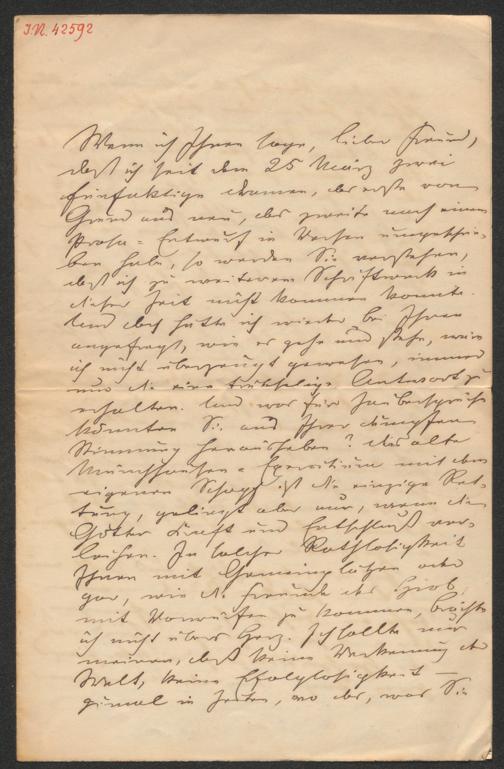 J.N. 42592
Wenn ich Ihnen sage, lieber Freund,
daß ich seit dem 25 März zwei
fünfaktige Dramen, das erste vom
Grund aus neu, das zweite nach einem
Prosa-Entwurf in Versen umgeschrie-
ben habe, so werden Sie verstehen,
daß ich zu weiterem Schriftwerk in
dieser Zeit nicht kommen konnte.
Und doch hätte ich wieder bei Ihnen
angefragt, wie es gehe und stehe, wenn
ich nicht überzeugt gewesen, immer
nur die eine trübselige Antwort zu
erhalten. Und was für Zaubersprüche
könnten Sie aus Ihrer dumpfen
Stimmung herausheben? Das alte
Münchhausen-Exercitium mit dem
eigenen Schopf ist die einzige Ret-
tung, gelingt aber nur, wenn die
Götter Kraft und Entschluß ver-
leihen. In solcher Rathlosigkeit
Ihnen mit Gemeinplätzen oder
gar, wie die Freunde des Hiob,
mit Vorwürfen zu kommen, brächte
ich nicht übers Herz. Ich sollte nur
meinen, daß keine Verkennung der
Welt, keine Erfolglosigkeit —
zumal in Zeiten, wo das, was Sie